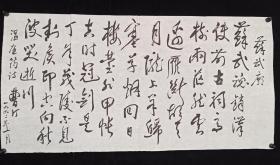 蘇武廟
蘇武魂銷漢
使前古祠高
樹兩茫然雲
邊雁斷胡天
月隴上羊歸
塞草烟回日
樓臺非甲帳
去時冠劍是
丁年茂陵不見
封侯印空向秋
波哭逝川
温庭筠詩